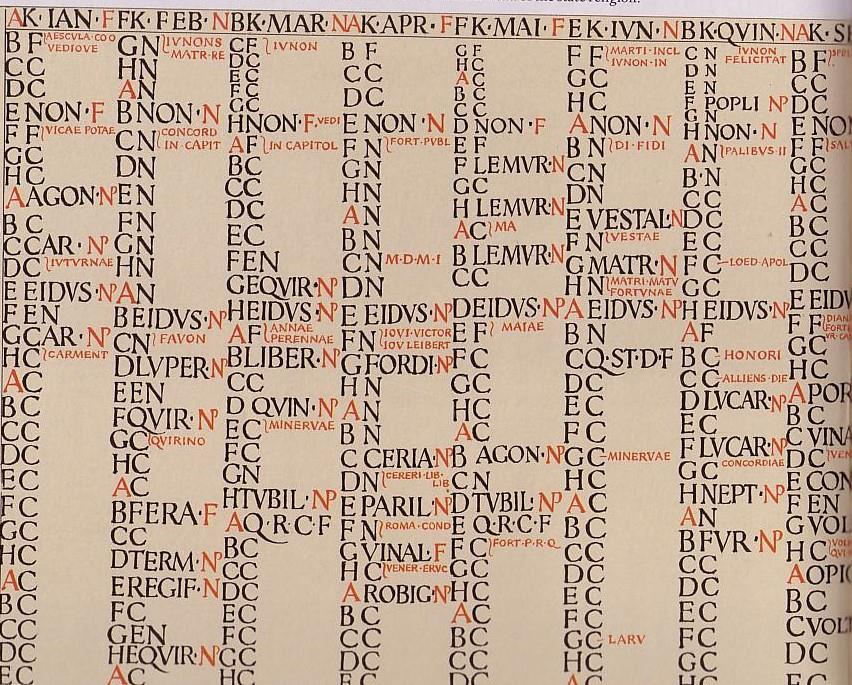 State religion.
AK·IAN·F FK·FEB·N BK·MAR·N AK·APR·F FK·MAI·F EK·IVN·N BK·QVIN·N AK·S
B F AESCVLA·COO
VEDIOVE
CC
DC
E NON·F
F F VICAE POTAE
GC
HC
AAGON·NP
B C
CCAR·NP
DC IVTVRNAE
E EIDVS·NP
F EN
GCAR·NP
HC CARMENT
AC
BC
CC
DC
EC
FC
GC
HC
AC
BC
CC
DC
EC
GN IVNONS
MATR·RE
HN
AN
BNON·N
CN CONCORD
IN·CAPIT
DN
EN
FN
GN
HN
AN
BEIDVS·NP
CN FAVON
DLVPER·NP
EEN
FQVIR·NP
GC QVIRINO
HC
AC
BFERA·F
CC
DTERM·NP
EREGIF·N
FC
GEN
HEQVIR·NP
AC
CF IVNON
DC
EC
FC
GC
HNON·F VEDI
AF IN CAPITOL
BC
CC
DC
EC
FEN
GEQVIR·NP
HEIDVS·NP
AF ANNAE
PERENNAE
BLIBER·NP
CC
D QVIN·NP
EC MINERVAE
FC
GN
HTVBIL·NP
AQ·R·C·F
BC
CC
DC
EC
FC
GC
HC
B F
CC
DC
E NON·N
F N FORT·PVBL
GN
HN
AN
BN
CN M·D·M·I
DN
E EIDVS·NP
FN IOVI·VICTOR
IOV LEIBERT
GFORDI·NP
HN
AN
BN
CCERIA·NP
DN CERERI·LIB·
LIB
EPARIL·NP
FN ROMA·COND
GVINAL·F
HC VENER·ERVC
AROBIG·NP
BC
CC
DC
EC
GF
HC
AC
BC
CC
DNON·F
EF
FLEMVR·N
GC
HLEMVR·N
AC MA
BLEMVR·N
CC
DEIDVS·NP
EF MAIAE
FC
GC
HC
AC
B AGON·NP
CN
DTVBIL·NP
E Q·R·C·F
FC FORT·P·R·Q
GC
HC
AC
BC
CC
DC
F F MARTI·INCL
IVNON·IN
GC
HC
ANON·N
BN DI·FIDI
CN
DN
EVESTAL·N
FN VESTAE
GMATR·N
HN MATRI·MATV
FORTVNAE
AEIDVS·NP
BN
CQ·ST·D·F
DC
EC
FC
GC MINERVAE
HC
AC
BC
CC
DC
EC
FC
GC LARV
HC
AC
CN IVNON
FELICITAT
DN
EN
F POPLI NP
GN
HNON·N
AN PALIBVS·II
B·N
CC
DC
EC
FC LOED·APOL
GC
HEIDVS·NP
AF
BC HONORI
CC ALLIENS·DIE
DLVCAR·NP
EC
FLVCAR·NP
GC CONCORDIAE
HNEPT·NP
AN
BFVR·NP
CC
DC
EC
FC
GC
HC
B F
CC
DC
E NO
F F SAL
GC
HC
AC
BC
CC
DC
E EIDV
F F DIAN
GC
HC
APOR
BC
CVINA
DC VEN
ECON
FEN
GVOL
HC
AOPIC
BC
CVOLT
DC